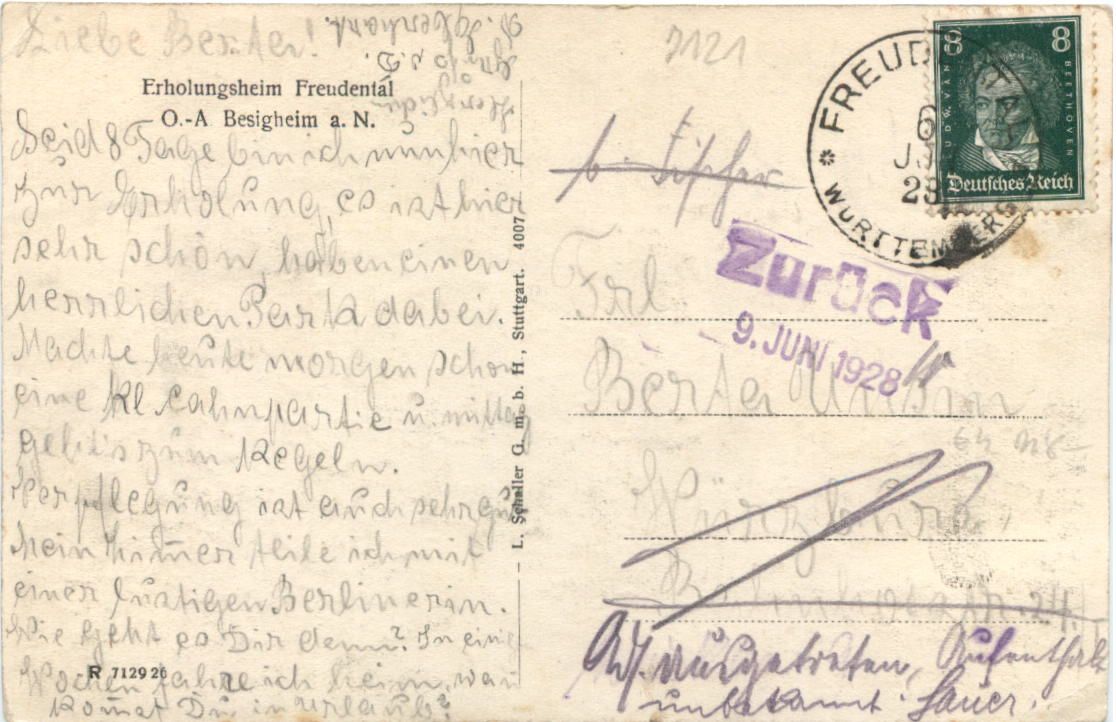 Liebe Berta!
Erholungsheim Freudental
O.-A. Besigheim a. N.
Seid 8 Tage bin ich nun hier
zur Erholung, es ist hier
sehr schön, haben einen
herrlichen Park dabei.
Machte heute morgen schon
eine kl. Cahnpartie u. mittag
geht's zum Kegeln.
Verpflegung ist auch sehr gut
Mein Zimmer teile ich mit
einer lustigen Berlinerin.
Wie geht es Dir denn? In eine
R 712926
Wochen fahre ich heim, wan
kommst Du in Urlaub?
L. Schaller G. m. b. H., Stuttgart. 4007
7121
b. Fischer
FREUDENTAL
6 JUN 28
WÜRTTEMBERG
8 8
LUDW. VAN BEETHOVEN
Deutsches Reich
Zurück
- 9. JUNI 1928
Frl.
Berta
Würzburg
24
ausgetreten, Aufenthalt
unbekannt. Sauer.